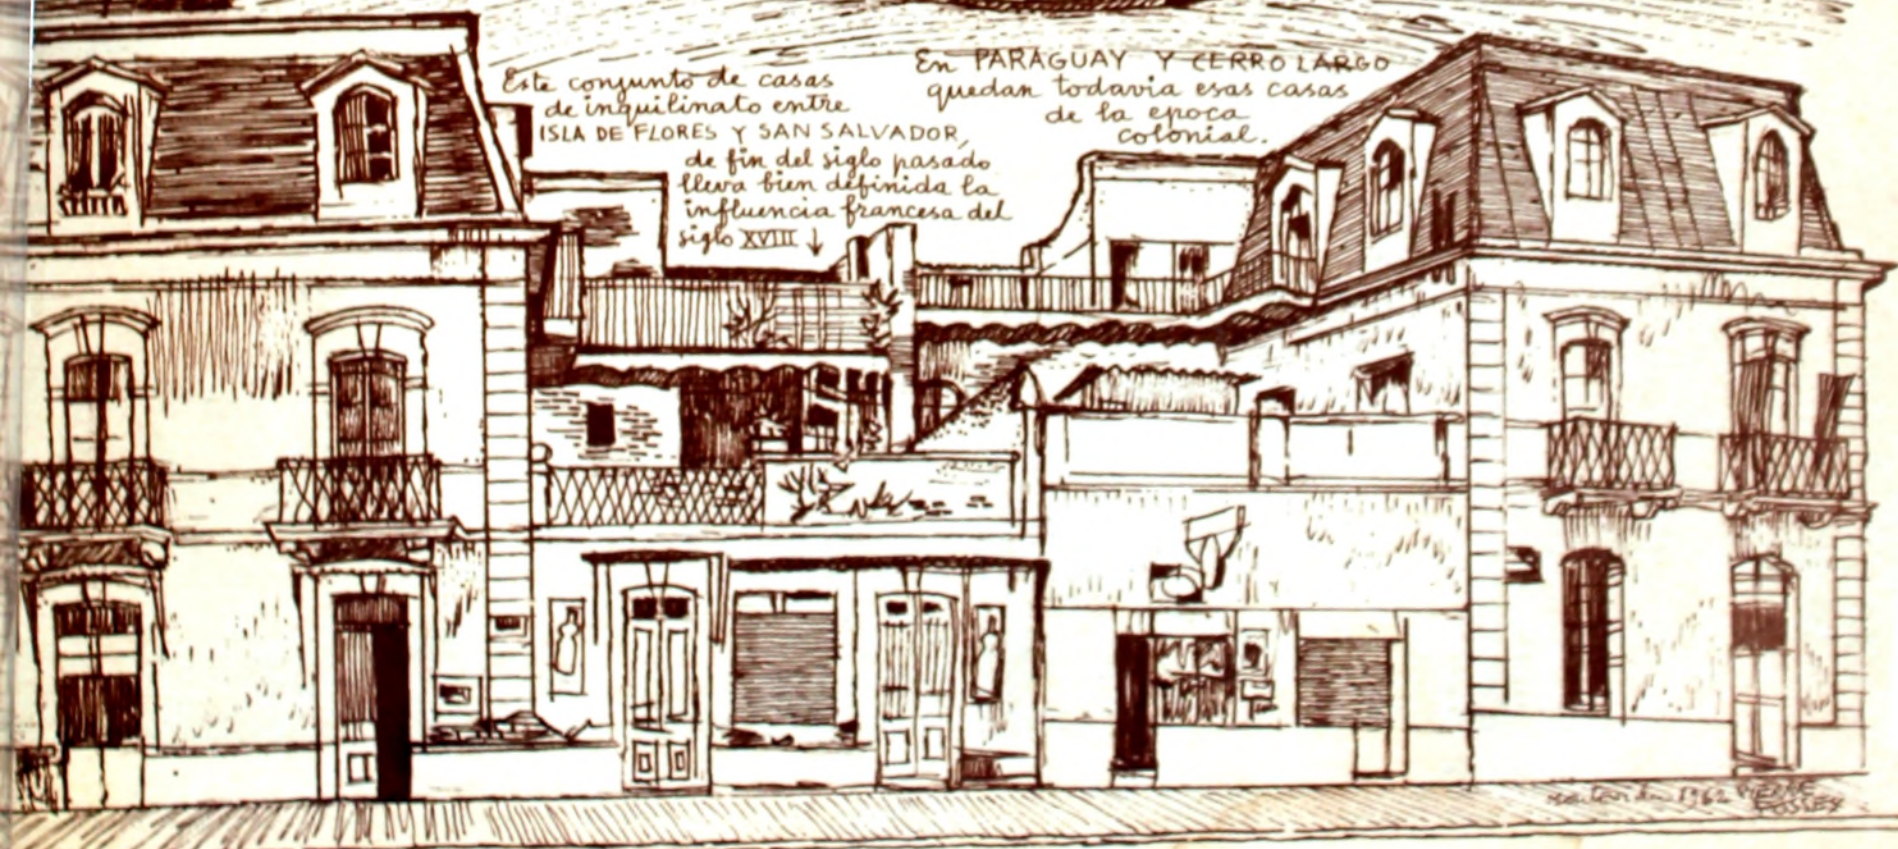 Este conjunto de casas
de inquilinato entre
ISLA DE FLORES Y SAN SALVADOR,
de fin del siglo pasado
lleva bien definida la
influencia francesa del
siglo XVIII ↓
En PARAGUAY Y CERRO LARGO
quedan todavia esas casas
de la epoca
colonial.
1962 PIERRE
FOSSEY